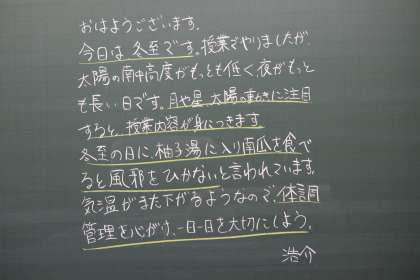 おはようございます.
今日は冬至です。授業でやりましたが、
太陽の南中高度がもっとも低く夜がもっと
も長い日です。月や星、太陽の動きに注目
すると、授業内容が身につきます
冬至の日に、柚子湯に入り南瓜を食べ
ると風邪をひかないと言われています。
気温がまた下がるようなので、体調
管理を心がけ、一日一日を大切にしよう。
浩介